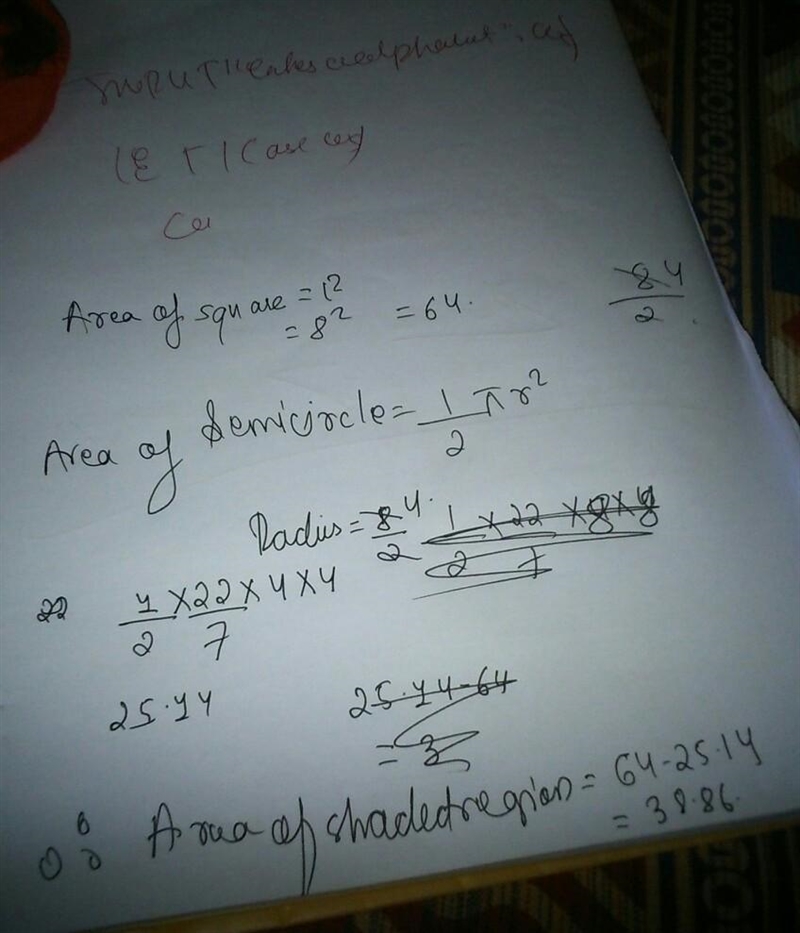 INPUT "Enter
Area of square = l²
= 8² = 64.
84
2
Area of Semicircle = 1/2 πr²
Radius = 8/2 4. 1/2 × 22/7 × 8 × 8
22 1/2 × 22/7 × 4 × 4
25.14 25.14-64
= 3
∴ Area of shaded region = 64-25.14
= 38.86.